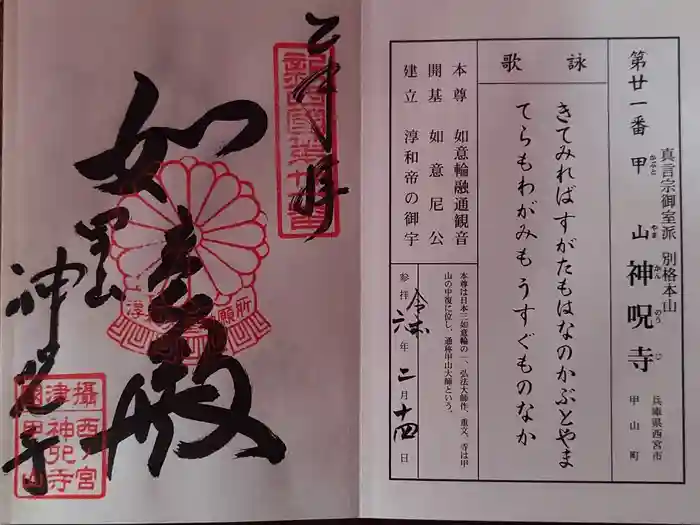 第廿一番 甲山 神呪寺
かぶと やま かん のう じ
真言宗御室派 別格本山
兵庫県西宮市
甲山町
詠歌
きてみればすがたもはなのかぶとやま
てらもわがみもうすぐものなか
本尊 如意輪融通観音
開基 如意尼公
建立 淳和帝の御宇
本尊は日本三如意輪の一、弘法大師作、重文。寺は甲
山の中復に位し、通称甲山大師という。
参拝 令和 六年 二月 十四日
奉拝
如意殿
甲山
神呪寺
攝西宮
津神呪寺
國甲山